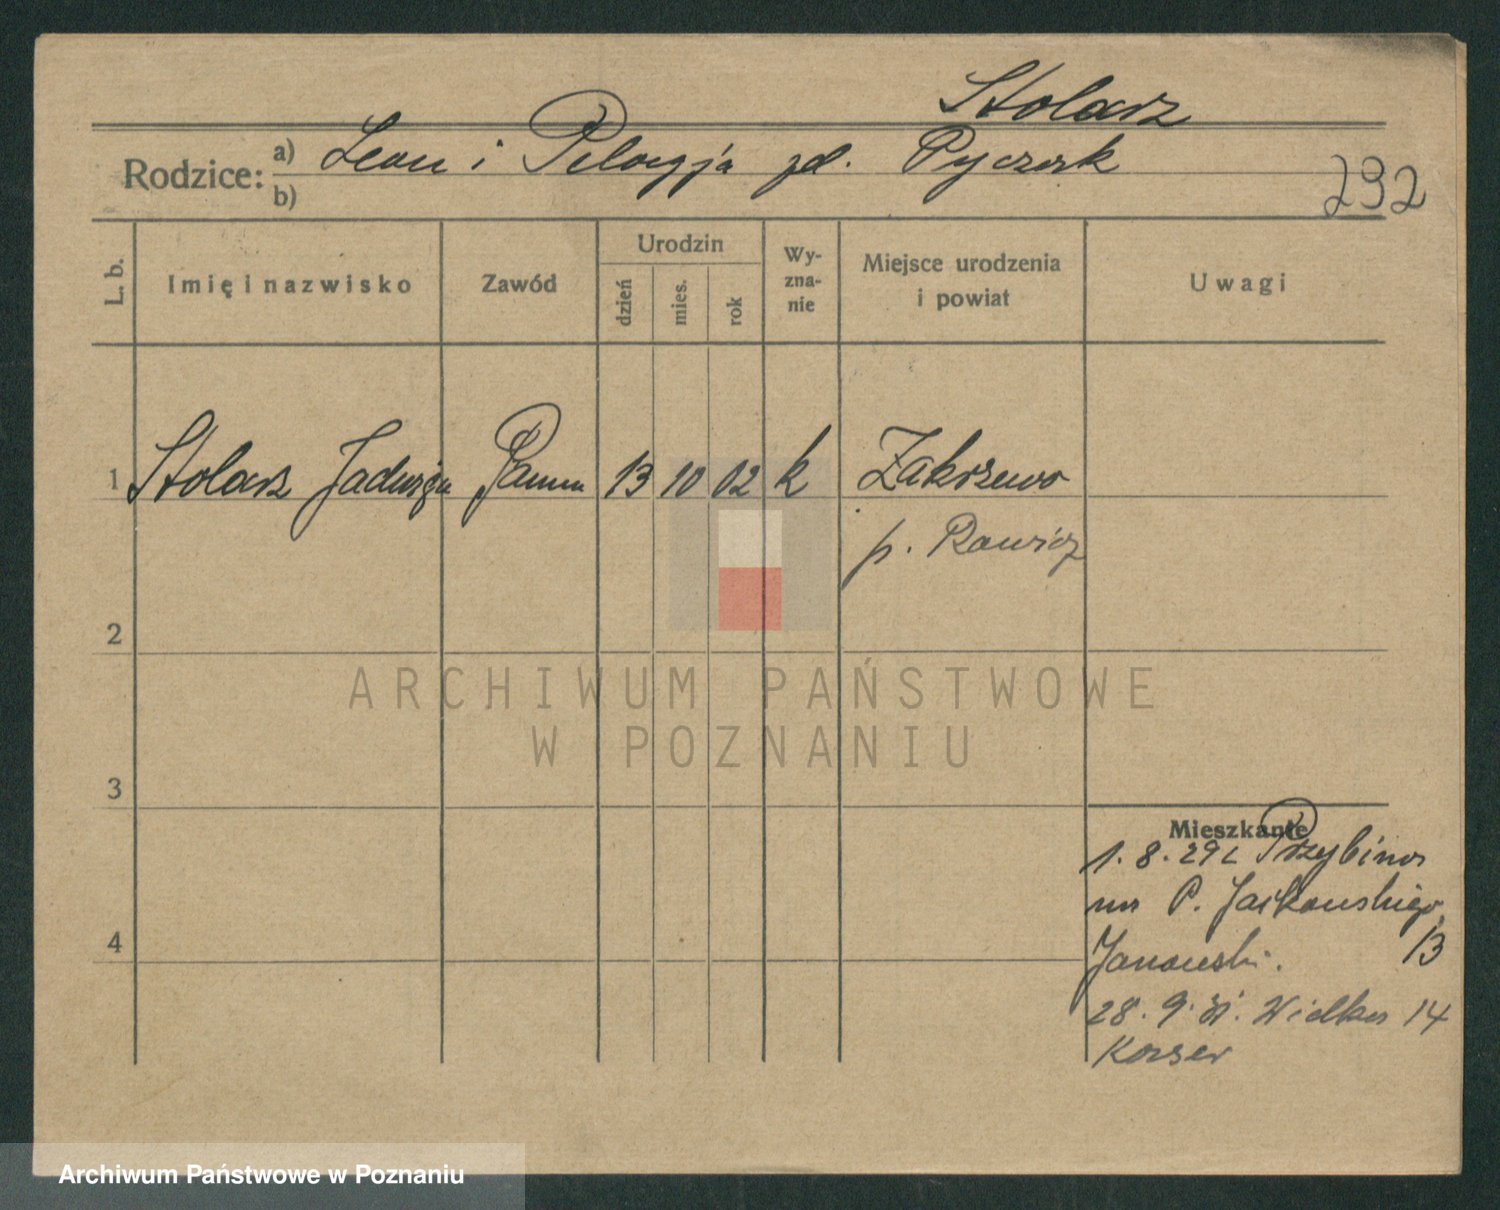 Stolarz
Rodzice: a) Leon i Pelagja zd. Pyczak
b)
292
L. b.
Imię i nazwisko
Zawód
Urodzin
dzień
mies.
rok
Wy-
zna-
nie
Miejsce urodzenia
i powiat
Uwagi
1 Stolarz Jadwiga Panna 13 10 02 k Zakrzewo
p. Rawicz
2
ARCHIWUM PAŃSTWOWE
W POZNANIU
3
Mieszkanie
1. 8. 29 z Przybina
na P. Jackowskiego
Janowski. 13
28. 9. 31. Wielka 14
Archiwum Państwowe w Poznaniu
4